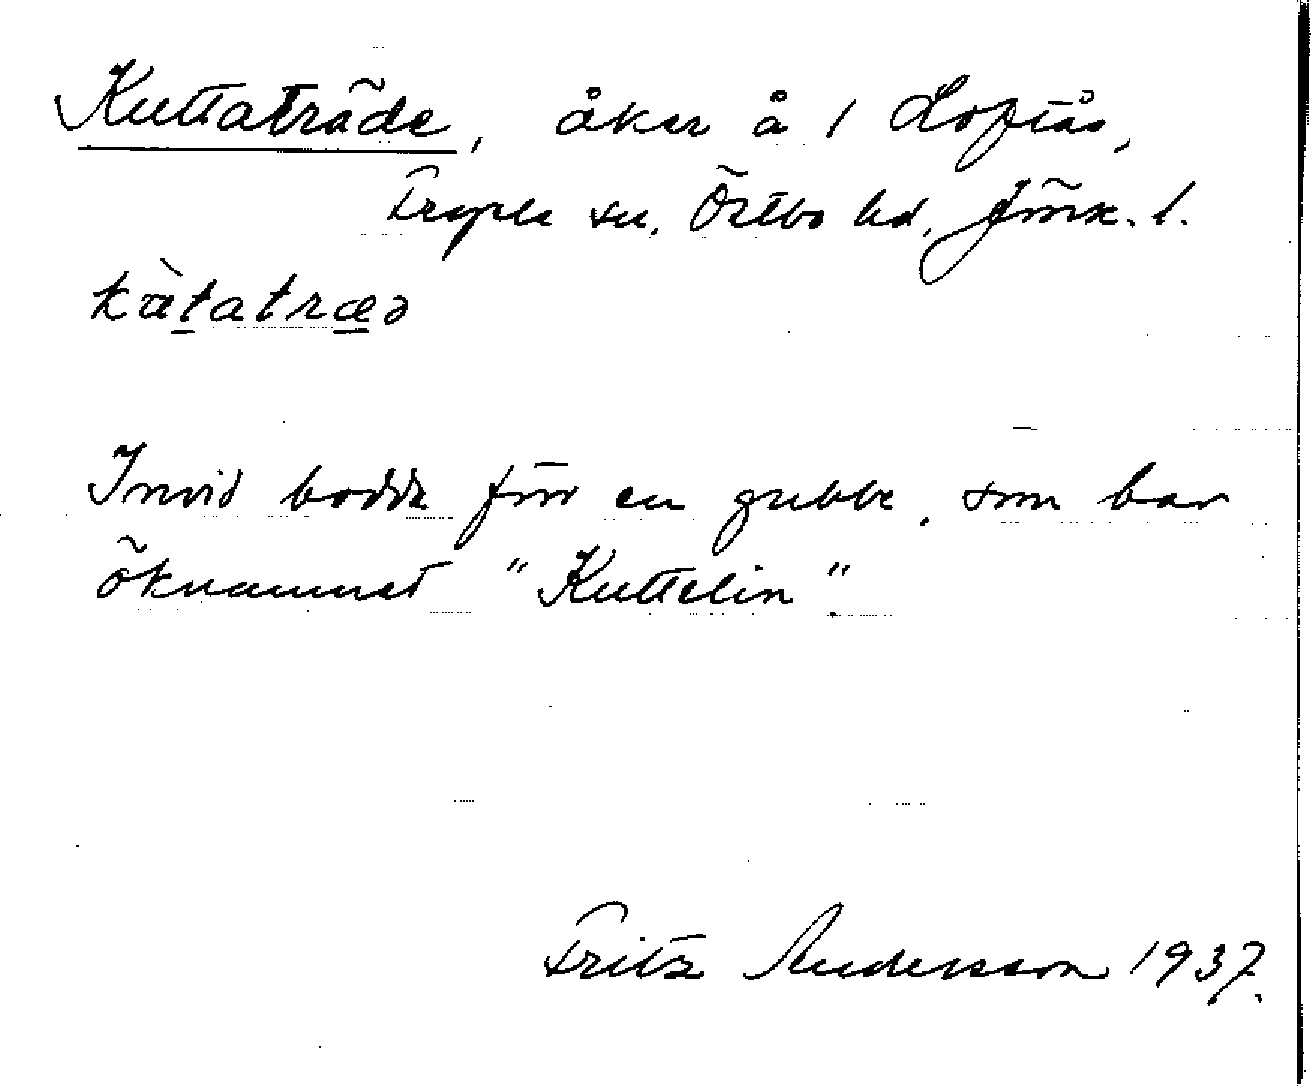 Kuttaträde, åker å 1 Loftås,
Fryele sn, Östbo hd, Jönk. l.
kàtatræǝ
Invid bodde förr en gubbe, som bar
öknamnet "Kuttelin".
Fritz Andersson 1937.